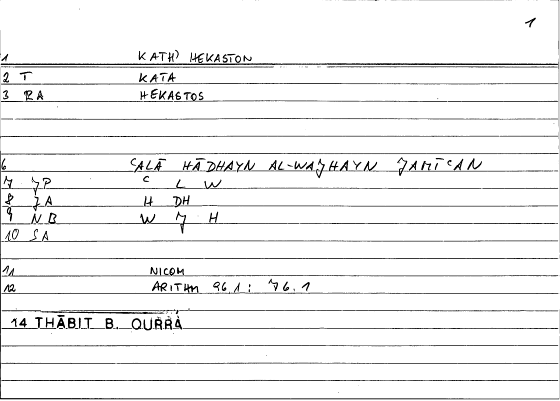 1
1 KATH' HEKASTON
2 T KATA
3 RA HEKASTOS
6 ʿALĀ HĀDHAYN AL-WAJHAYN JAMĪʿAN
7 JP ʿ L W
8 JA H DH
9 NB W J H
10 SA
11 NICOM
12 ARITHM 96.1 : 76.1
14 THĀBIT B. QURRA